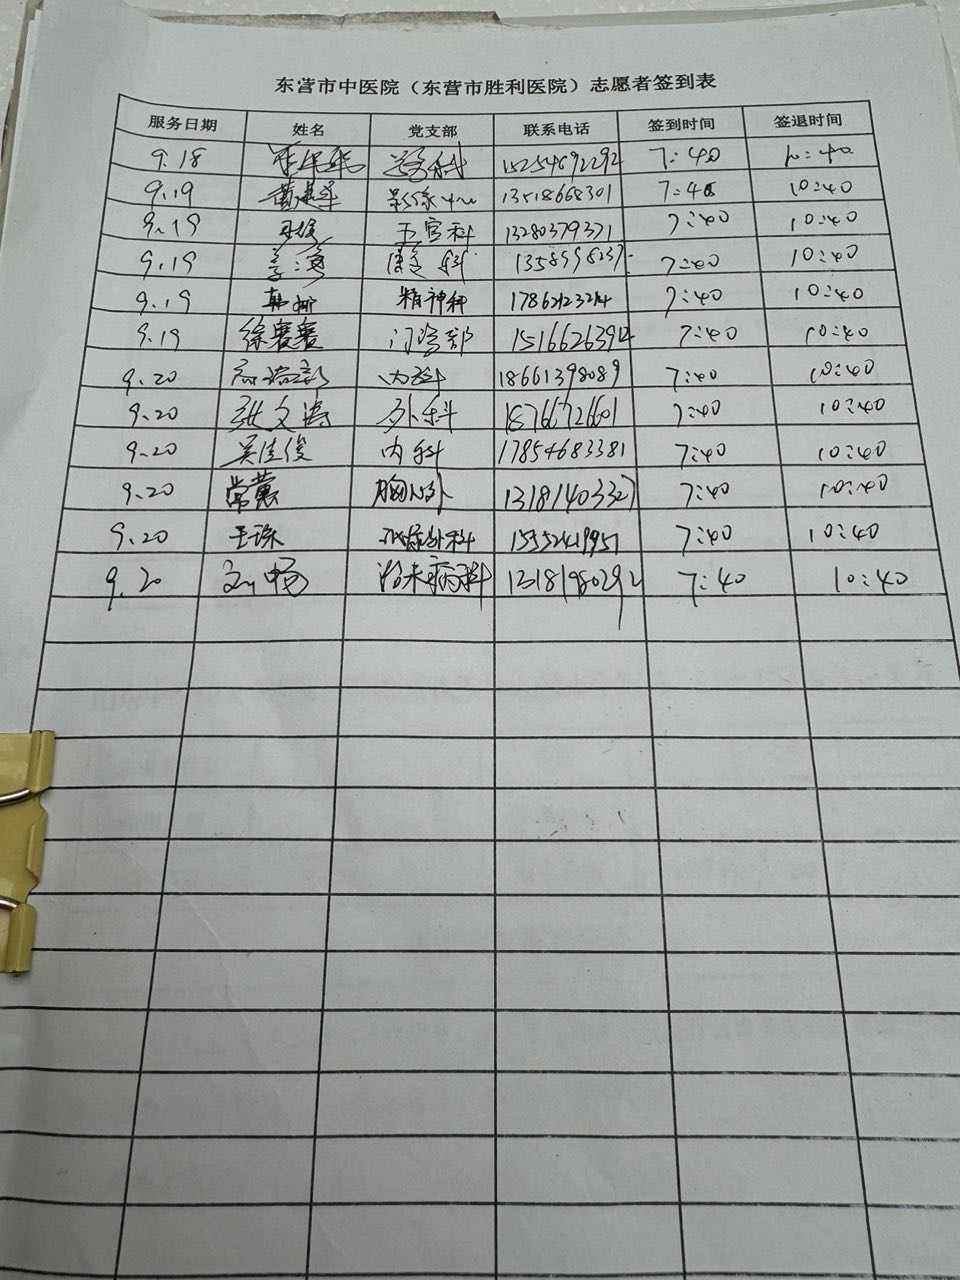 东营市中医院（东营市胜利医院）志愿者签到表
服务日期 姓名 党支部 联系电话 签到时间 签退时间
9.18 15254692292 7:40 10:40
9.19 黄建军 影像中心 13518668301 7:40 10:40
9.19 五官科 13280379371 7:40 10:40
9.19 李湾 康复科 7:40 10:40
9.19 韩娜 精神科 7:40 10:40
9.19 徐赛赛 门诊部 7:40 10:40
9.20 内科 18661398089 7:40 10:40
9.20 张文涛 外科 18766726601 7:40 10:40
9.20 吴佳俊 内科 17854683381 7:40 10:40
9.20 常震 胸外 13181403327 7:40 10:40
9.20 王琼 泌尿外科 7:40 10:40
9.20 刘畅 治未病科 13181980292 7:40 10:40